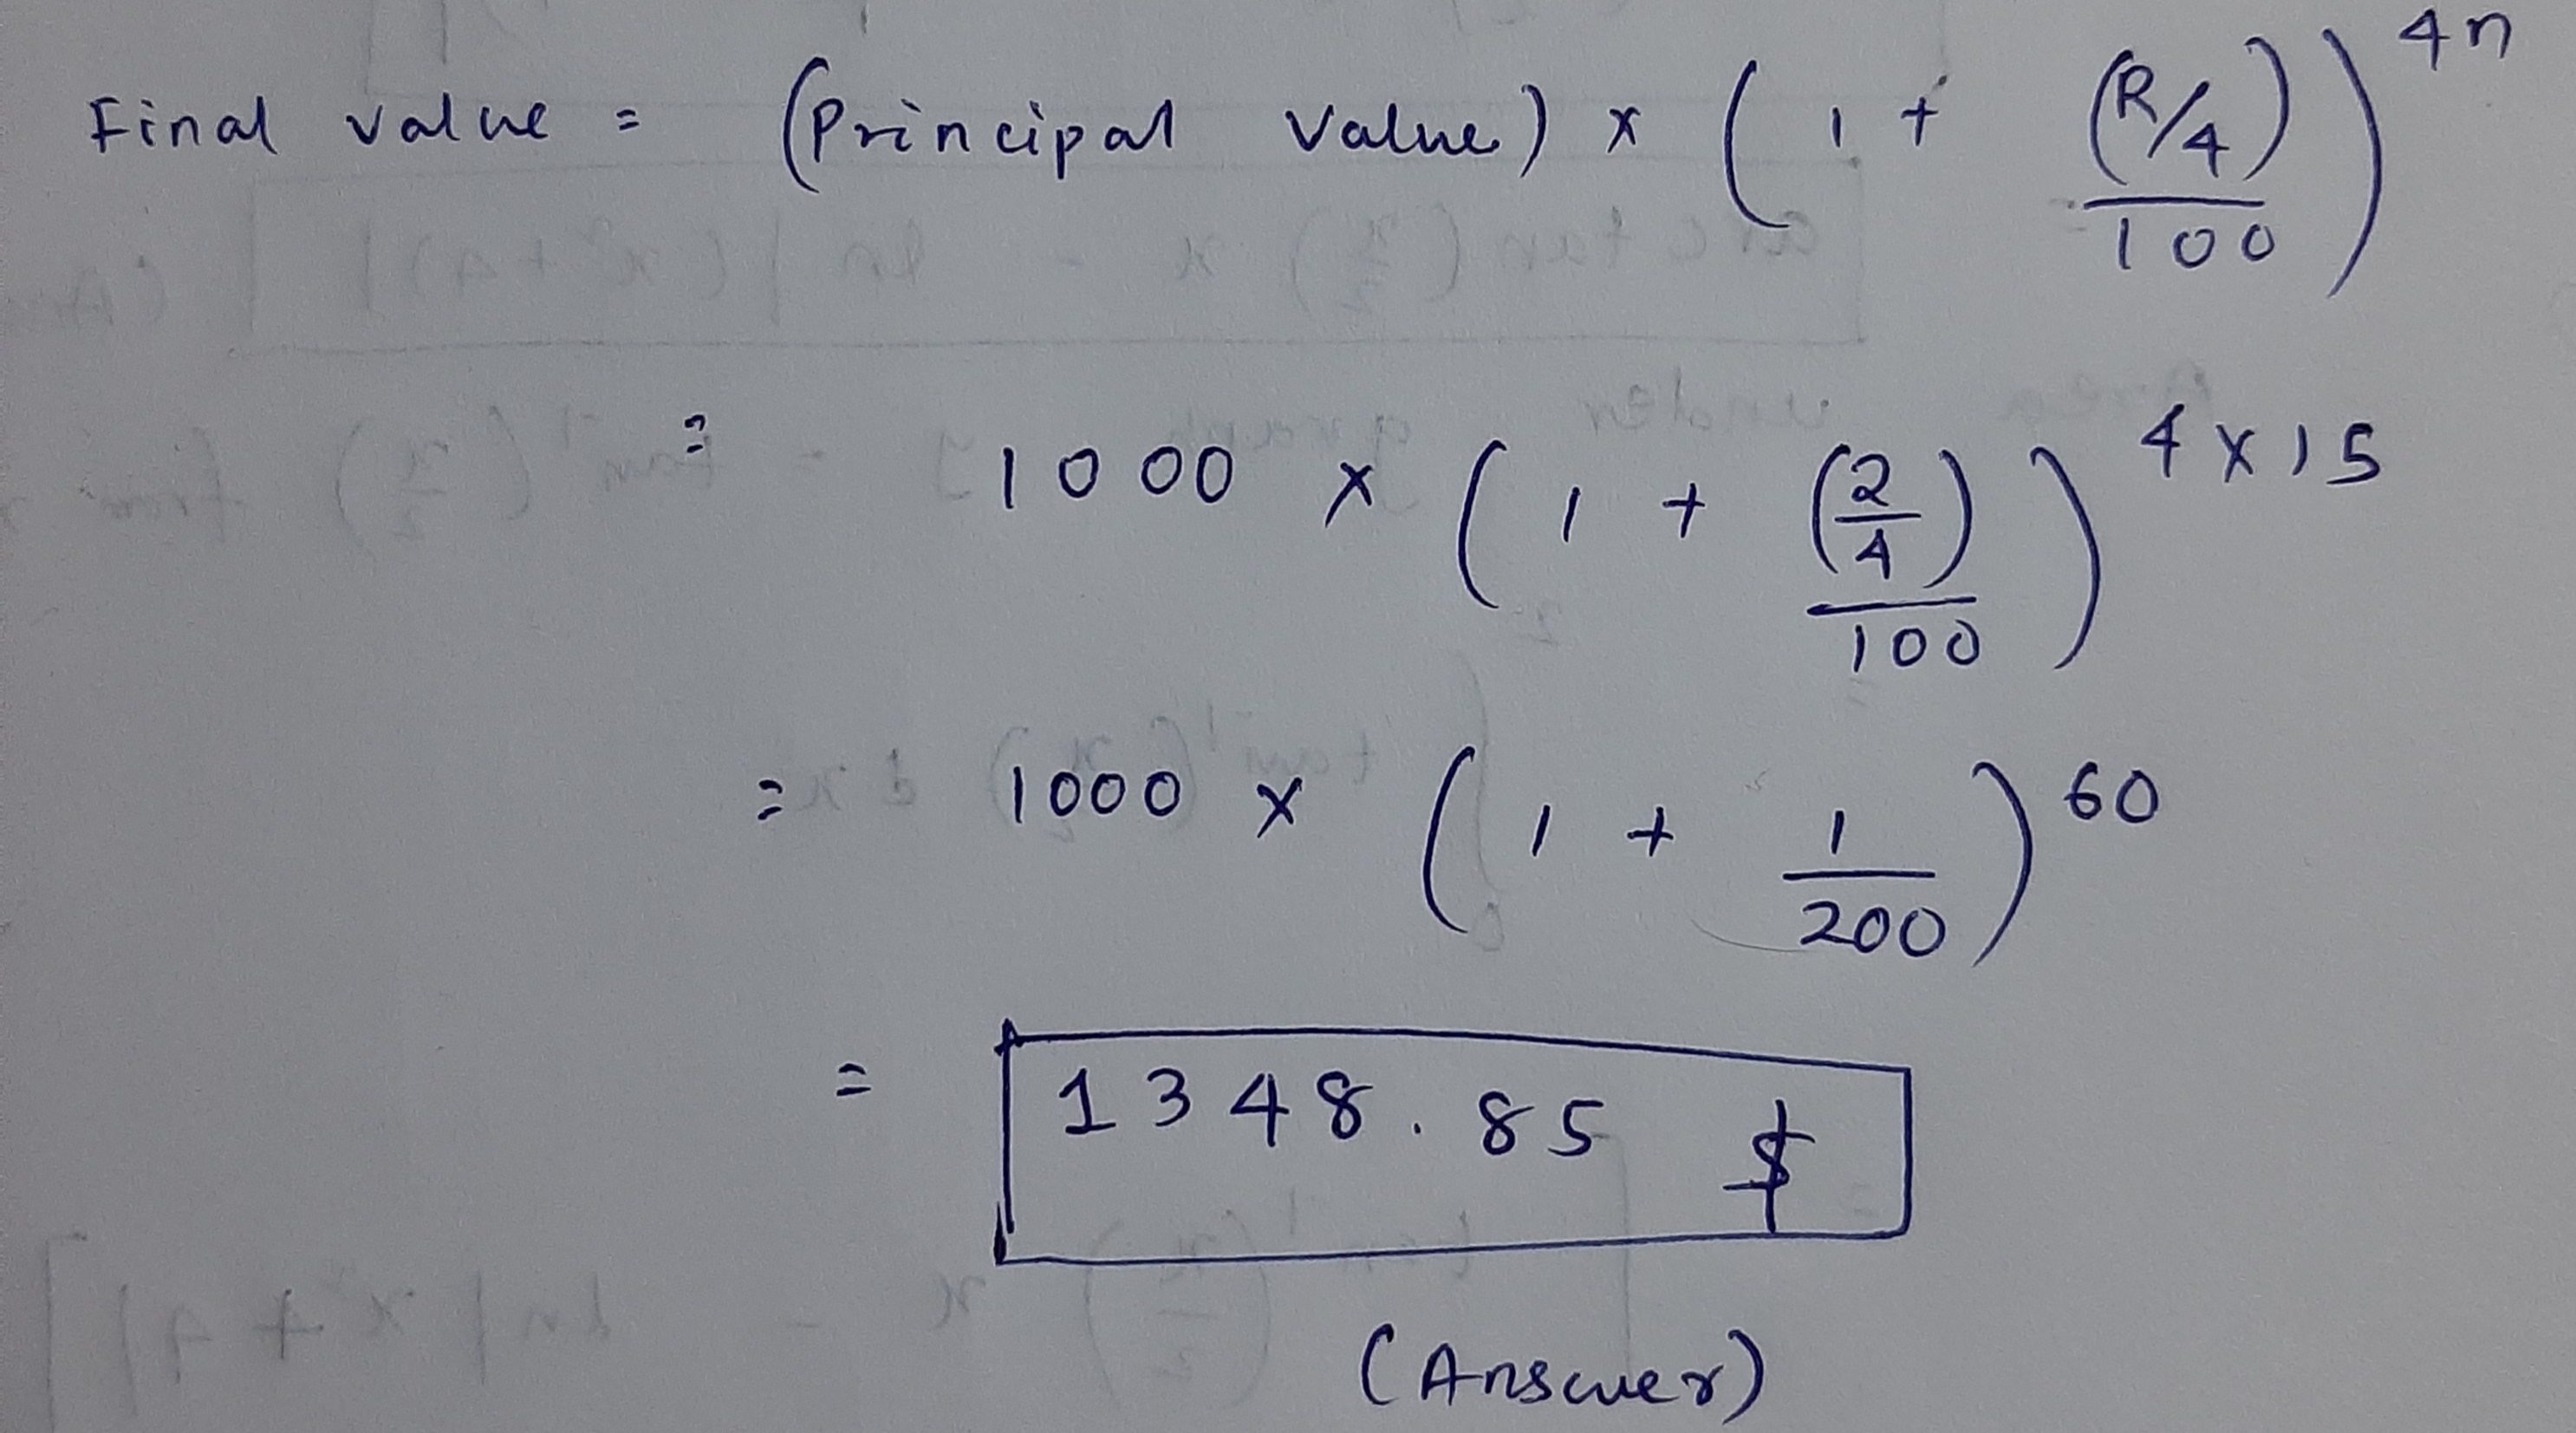 Final value = (Principal value) x ( 1 + (R/4) / 100 )^4n
= 1000 x ( 1 + (2/4) / 100 )^4x15
= 1000 x ( 1 + 1/200 )^60
= 1348.85 $
(Answer)